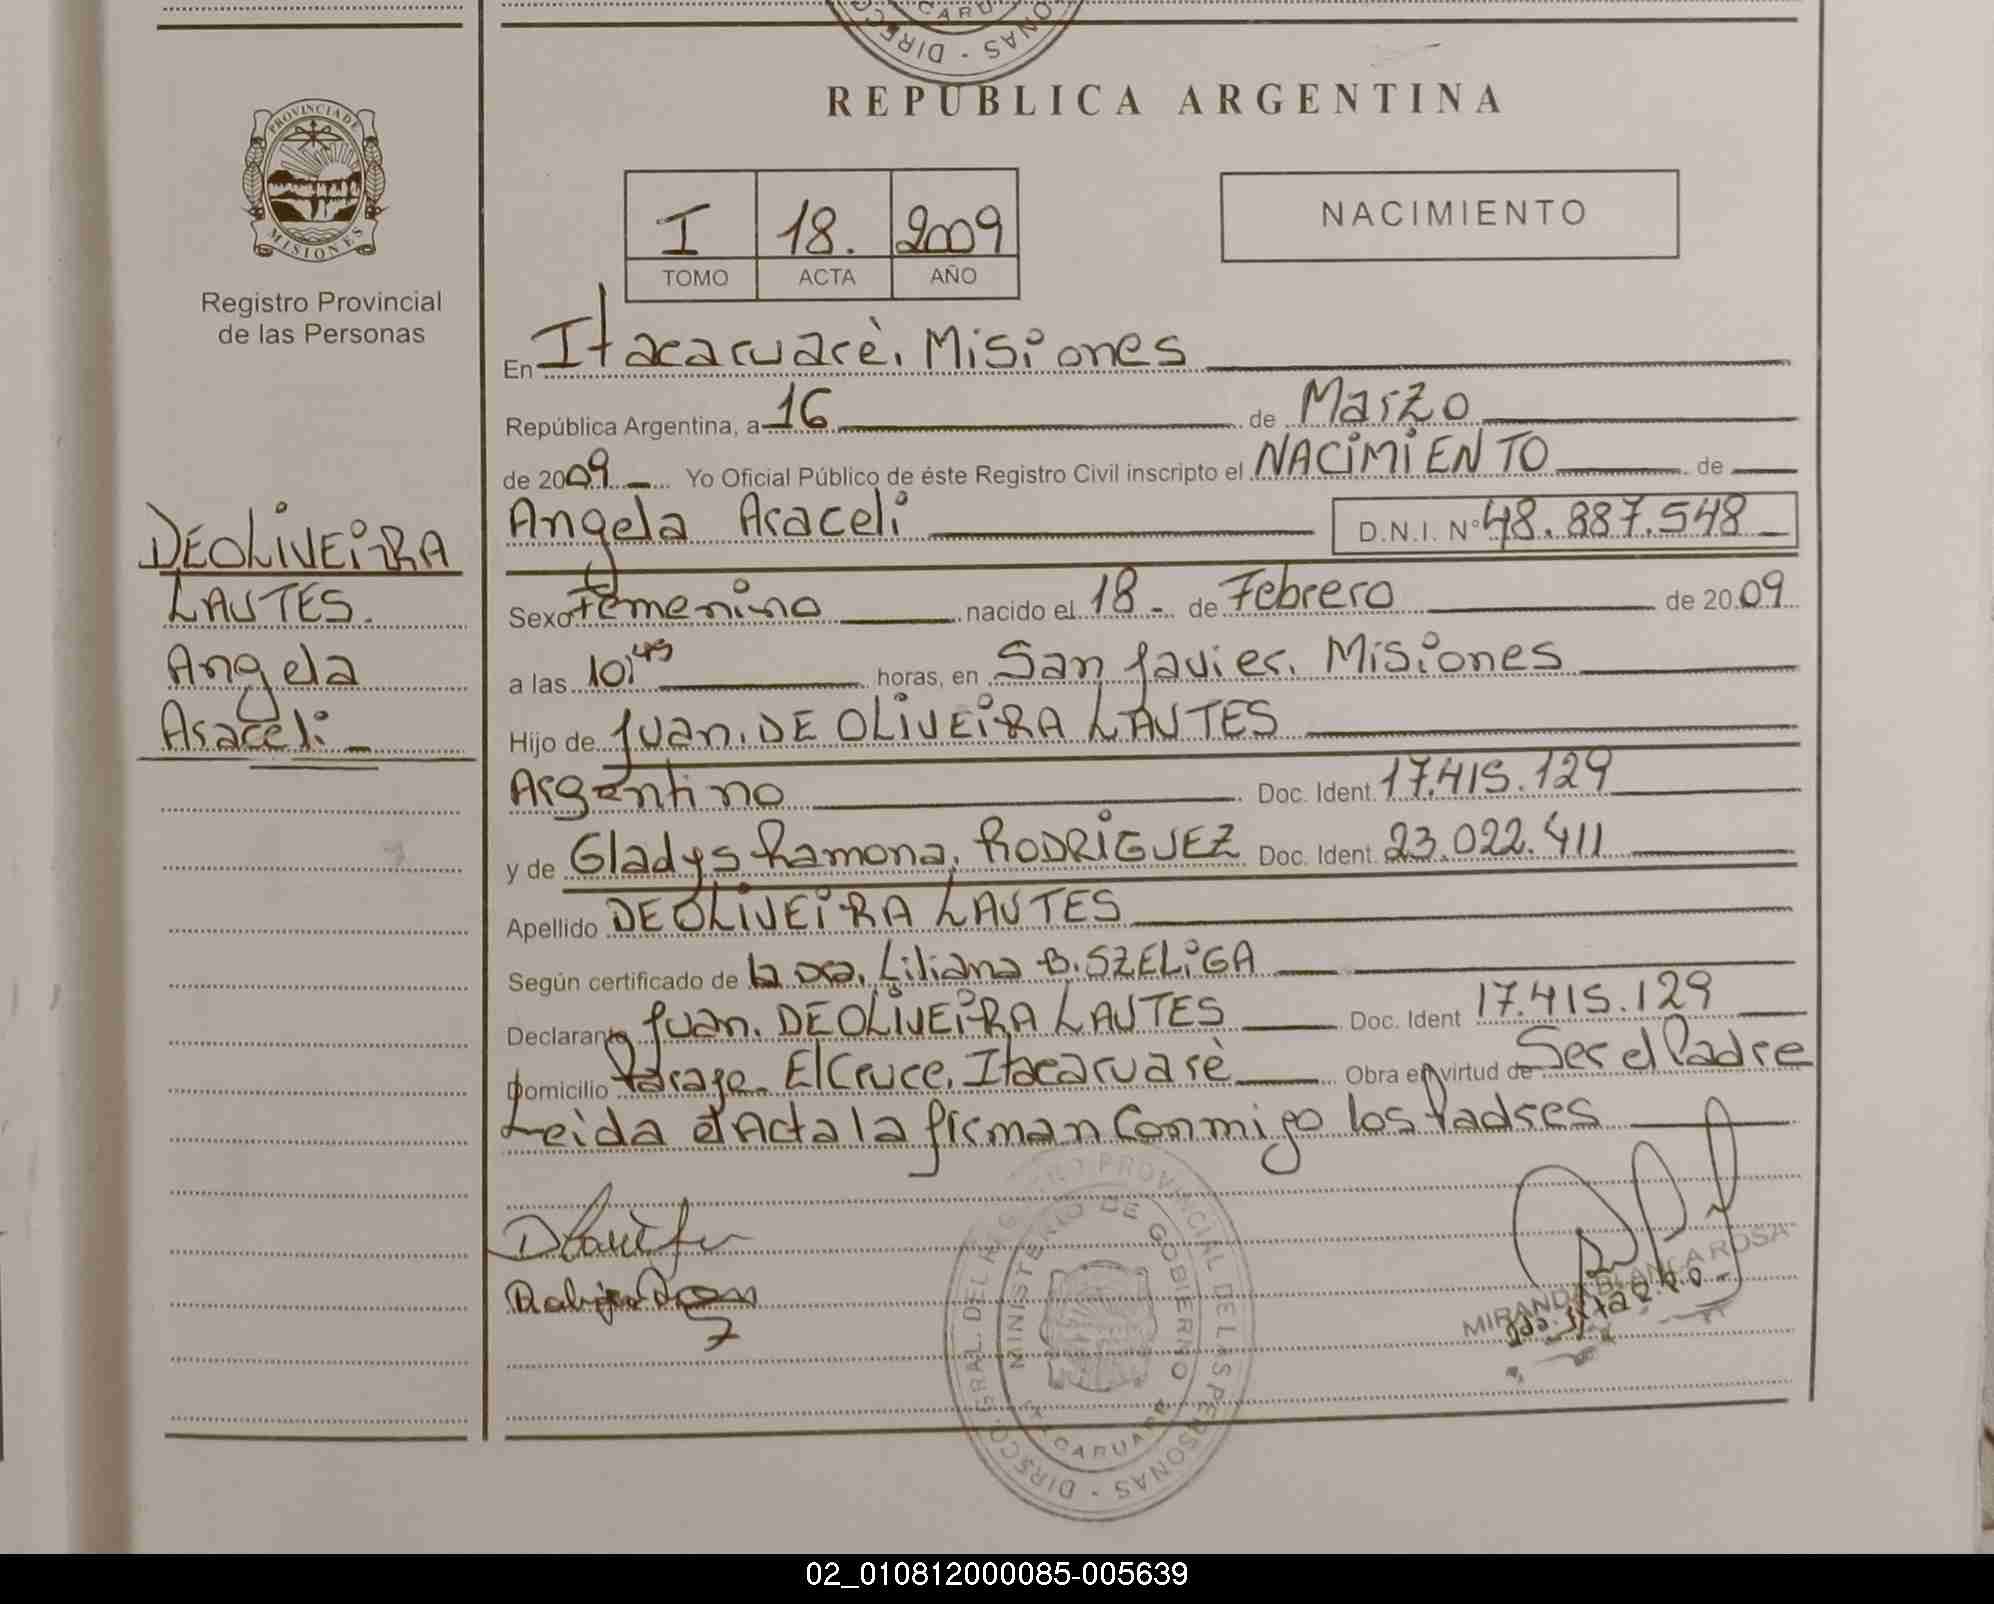 REPUBLICA ARGENTINA
PROVINCIA DE
MISIONES
Registro Provincial
de las Personas
I 18. 2009
TOMO ACTA AÑO
NACIMIENTO
DEOLIVEIRA
LAUTES.
Angela
Araceli
En Itacaruarè, Misiones
República Argentina, a 16 de Marzo
de 2009 Yo Oficial Público de éste Registro Civil inscripto el NACIMIENTO de
Angela Araceli D.N.I. Nº 48.887.548
Sexo femenino nacido el 18 - de Febrero de 2009
a las 10,45 horas, en San Javier. Misiones
Hijo de Juan. DE OLIVEIRA LAUTES
Argentino Doc. Ident. 17.415.129
y de Gladys Ramona. RODRIGUEZ Doc. Ident. 23.022.411
Apellido DEOLIVEIRA LAUTES
Según certificado de la Dra. Liliana B. SZELIGA
Declarante Juan. DEOLIVEIRA LAUTES Doc. Ident 17.415.129
Domicilio Paraje. El Cruce, Itacaruarè Obra en virtud de Ser el Padre
Leida el Acta la firman Conmigo los Padres
MIRANDA BLANCA ROSA
DIRECC. GRAL. DEL REGISTRO PROVINCIAL DE LAS PERSONAS
MINISTERIO DE GOBIERNO
ITACARUARE
02_010812000085-005639